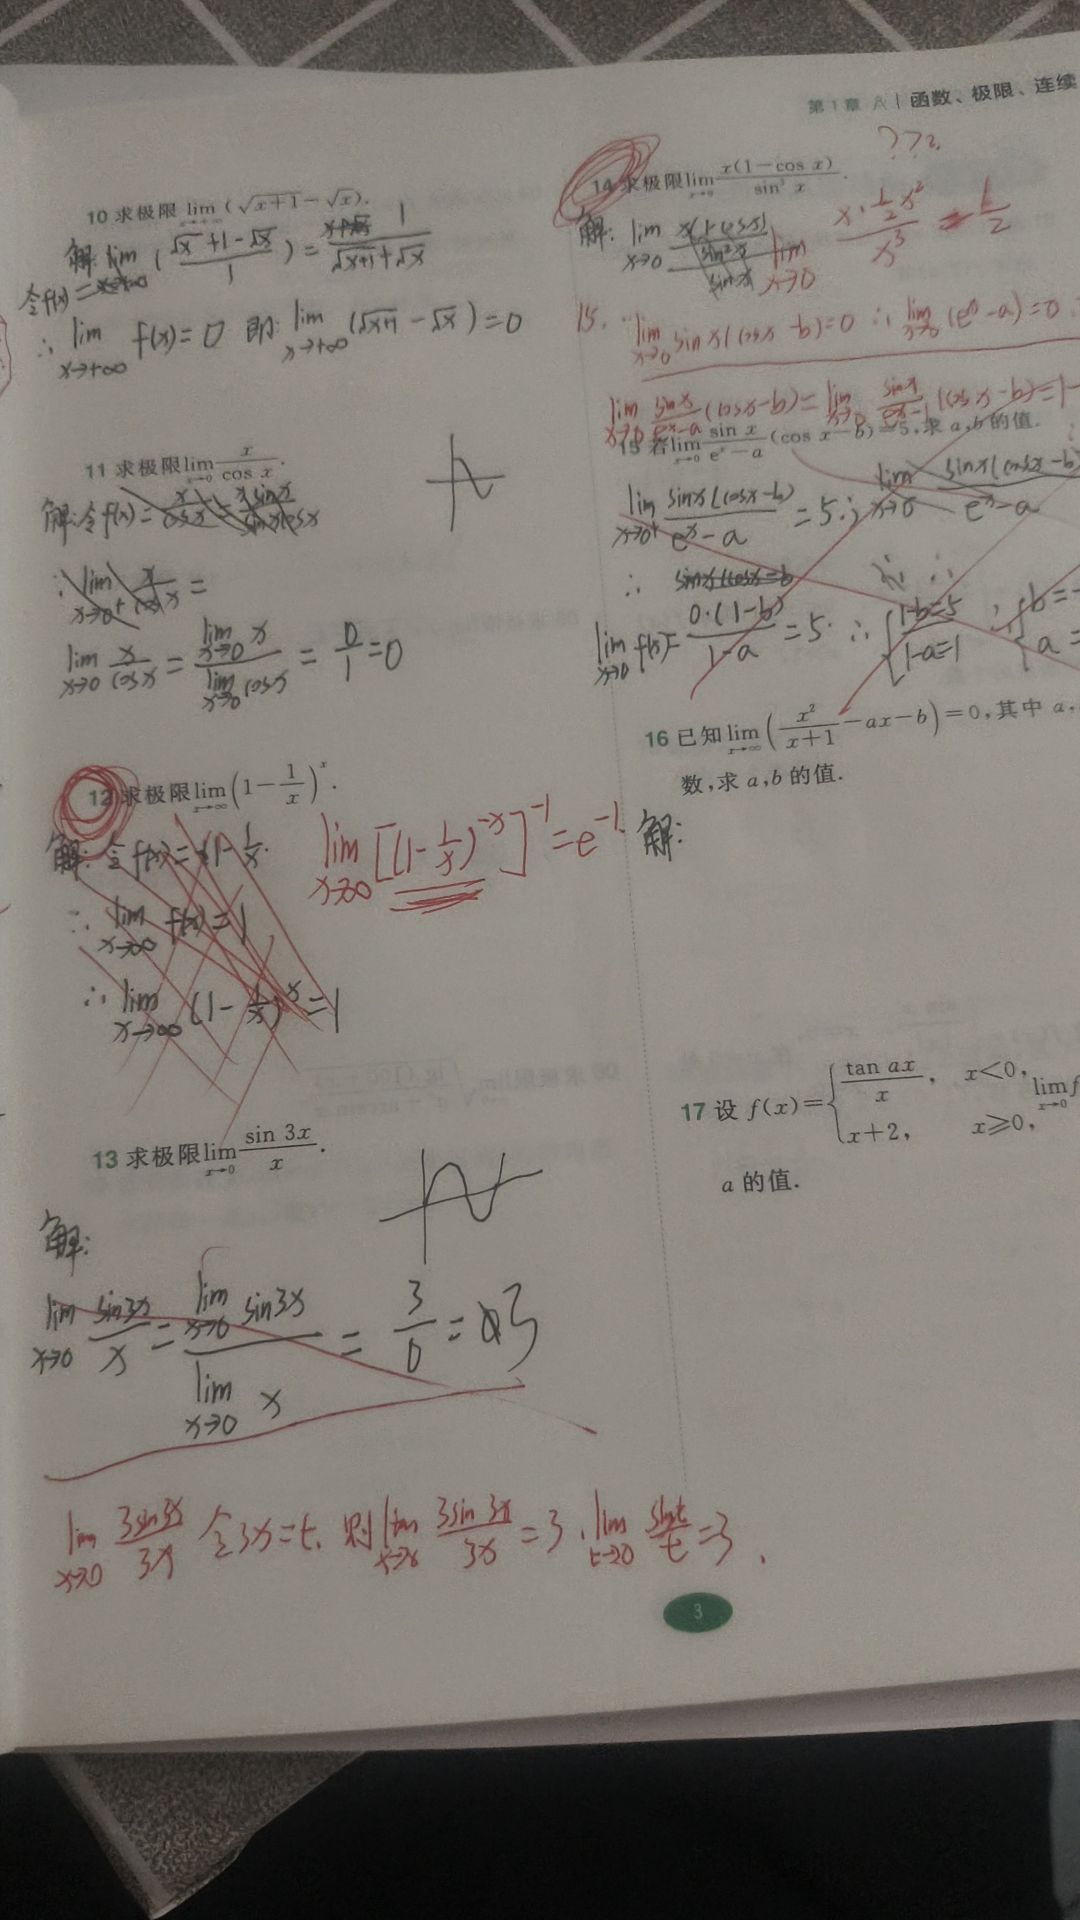 第1章 A | 函数、极限、连续
10 求极限 lim x→+∞ (√(x+1) − √x).
∴ lim x→+∞ f(x)=0 即: lim x→+∞ (√(x+1) − √x)=0
11 求极限 lim x→0 x/cos x.
lim x→0 x/cos x = lim x→0 x / lim x→0 cos x = 0/1 = 0
12 求极限 lim x→∞ (1 − 1/x)^x.
lim x→∞ [(1 − 1/x)^−x]^−1 = e^−1.
解: 令 f(x)=
∴ lim x→∞ f(x)=1
∴ lim x→∞ (1 − 1/x)^x = 1
13 求极限 lim x→0 sin 3x/x.
解:
lim x→0 sin3x/x = lim x→0 sin3x / lim x→0 x = 3/0 =
lim x→0 3sin3x/3x 令3x=t. 则 lim x→0 3sin3x/3x = 3·lim t→0 sint/t = 3.
???
14 求极限 lim x→0 x(1−cos x)/sin³ x.
解:
lim x→0 x·½x²/x³ = 1/2
15. ∵ lim x→0 sin x(cos x − b)=0 ∴ lim x→0 (e^x − a)=0
lim x→0 sin x/(e^x − a) (cos x − b) = lim x→0 sin x/(e^x − 1) (cos x − b) = 1−
15 若 lim x→0 sin x/(e^x − a) (cos x − b)=5, 求 a,b 的值.
lim sin x(cos x − b)/(e^x − a) = 5. lim x→0 sin x(cos x − b)/(e^x − a)
∴
lim x→0 f(x)= 0·(1−b)/(1−a) = 5 ∴ {1−b=5 1−a=1
16 已知 lim x→∞ (x²/(x+1) − ax − b)=0, 其中 a,
数, 求 a,b 的值.
解:
17 设 f(x)={tan ax/x, x<0, x+2, x≥0, lim x→0 f
a 的值.
3